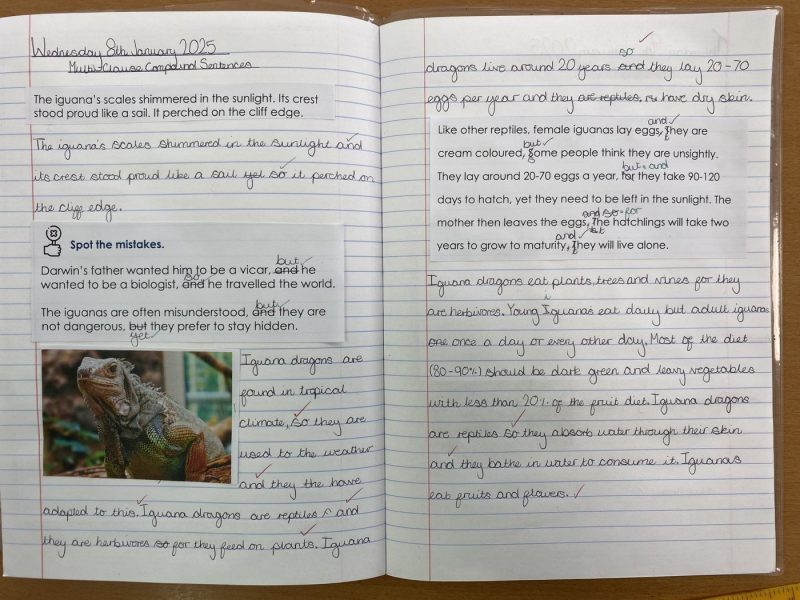 Wednesday 8th January 2025
Multi-Clause Compound Sentences
The iguana's scales shimmered in the sunlight. Its crest
stood proud like a sail. It perched on the cliff edge.
The iguana's scales shimmered in the sunlight and
its crest stood proud like a sail yet so it perched on
the cliff edge.
Spot the mistakes.
but
Darwin's father wanted him to be a vicar, and he
so
wanted to be a biologist, and he travelled the world.
but
The iguanas are often misunderstood, and they are
not dangerous, but they prefer to stay hidden.
yet
Iguana dragons are
found in tropical
climate, so they are
used to the weather
and they the have
adapted to this. Iguana dragons are reptiles and
they are herbivores so for they feed on plants. Iguana
so
dragons live around 20 years and they lay 20-70
eggs per year and they are reptiles, have dry skin.
and
Like other reptiles, female iguanas lay eggs, They are
but
cream coloured, Some people think they are unsightly.
but and
They lay around 20-70 eggs a year, for they take 90-120
days to hatch, yet they need to be left in the sunlight. The
and so for
mother then leaves the eggs, The hatchlings will take two
and
years to grow to maturity, They will live alone.
Iguana dragons eat plants, trees and vines for they
are herbivores. Young Iguanas eat daily but adult iguanas
once a day or every other day. Most of the diet
(80-90%) should be dark green and leavy vegetables
with less than 20% of the fruit diet. Iguana dragons
are reptiles so they absorb water through their skin
and they bathe in water to consume it. Iguanas
eat fruits and flowers.